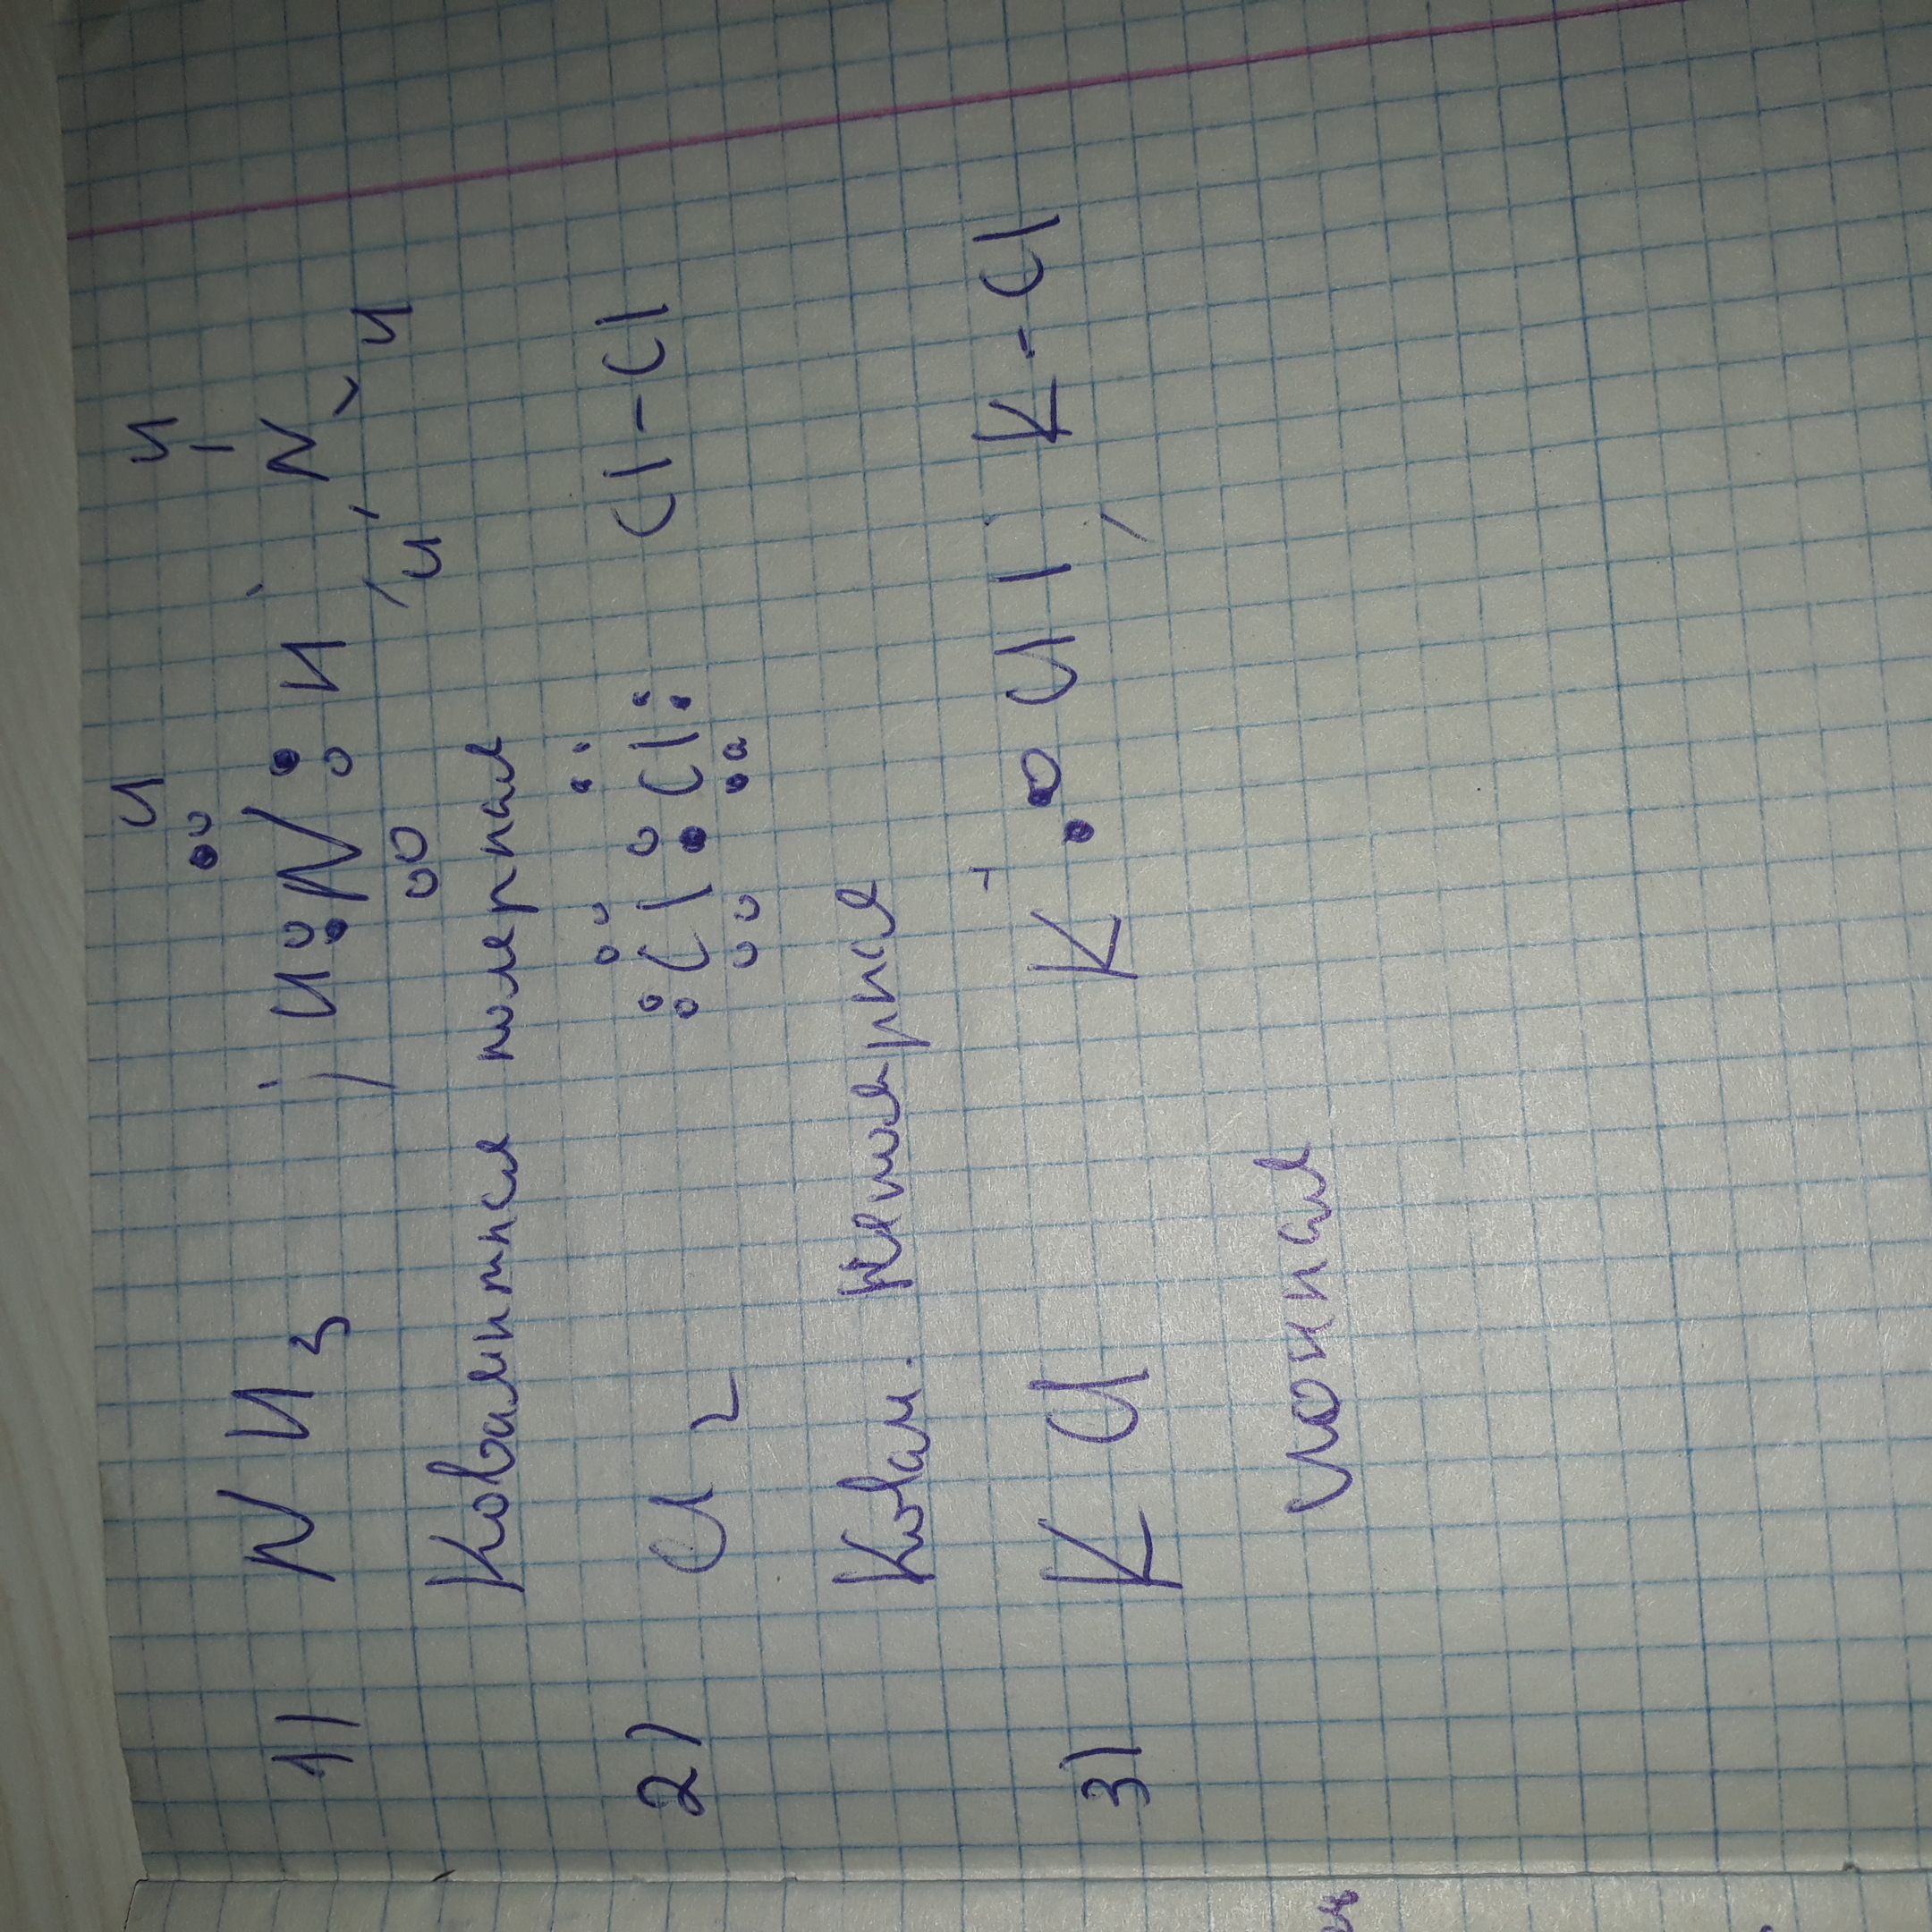 1) NH3 ; H : N : H ; H - N - H
H H
Ковалентная полярная
2) Cl2 : Cl : Cl : Cl-Cl
Ковал. неполярная
3) KCl K : Cl ; K-Cl
ионная